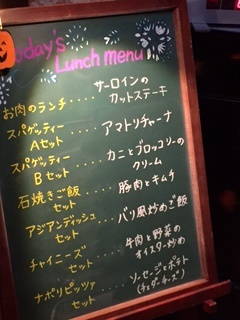 Today's
Lunch menu
お肉のランチ‥‥サーロインの
カットステーキ
スパゲッティー
Aセット‥‥アマトリチャーナ
スパゲッティー
Bセット‥‥カニとブロッコリーの
クリーム
石焼きご飯
セット‥‥豚肉とキムチ
アジアンディッシュ
セット‥‥バリ風炒めご飯
チャイニーズ
セット‥‥牛肉と野菜の
オイスター炒め
ナポリピッツァ
セット‥‥ソーセージとポテト
(チェダーチーズ)